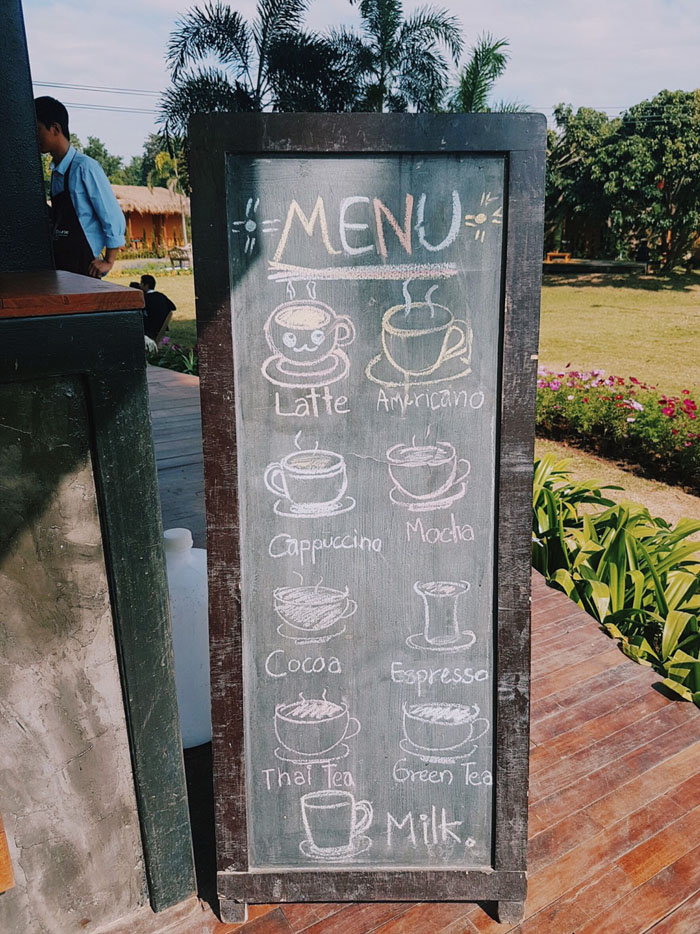 MENU
Latte Americano
Cappuccino Mocha
Cocoa Espresso
Thai Tea Green Tea
Milk.